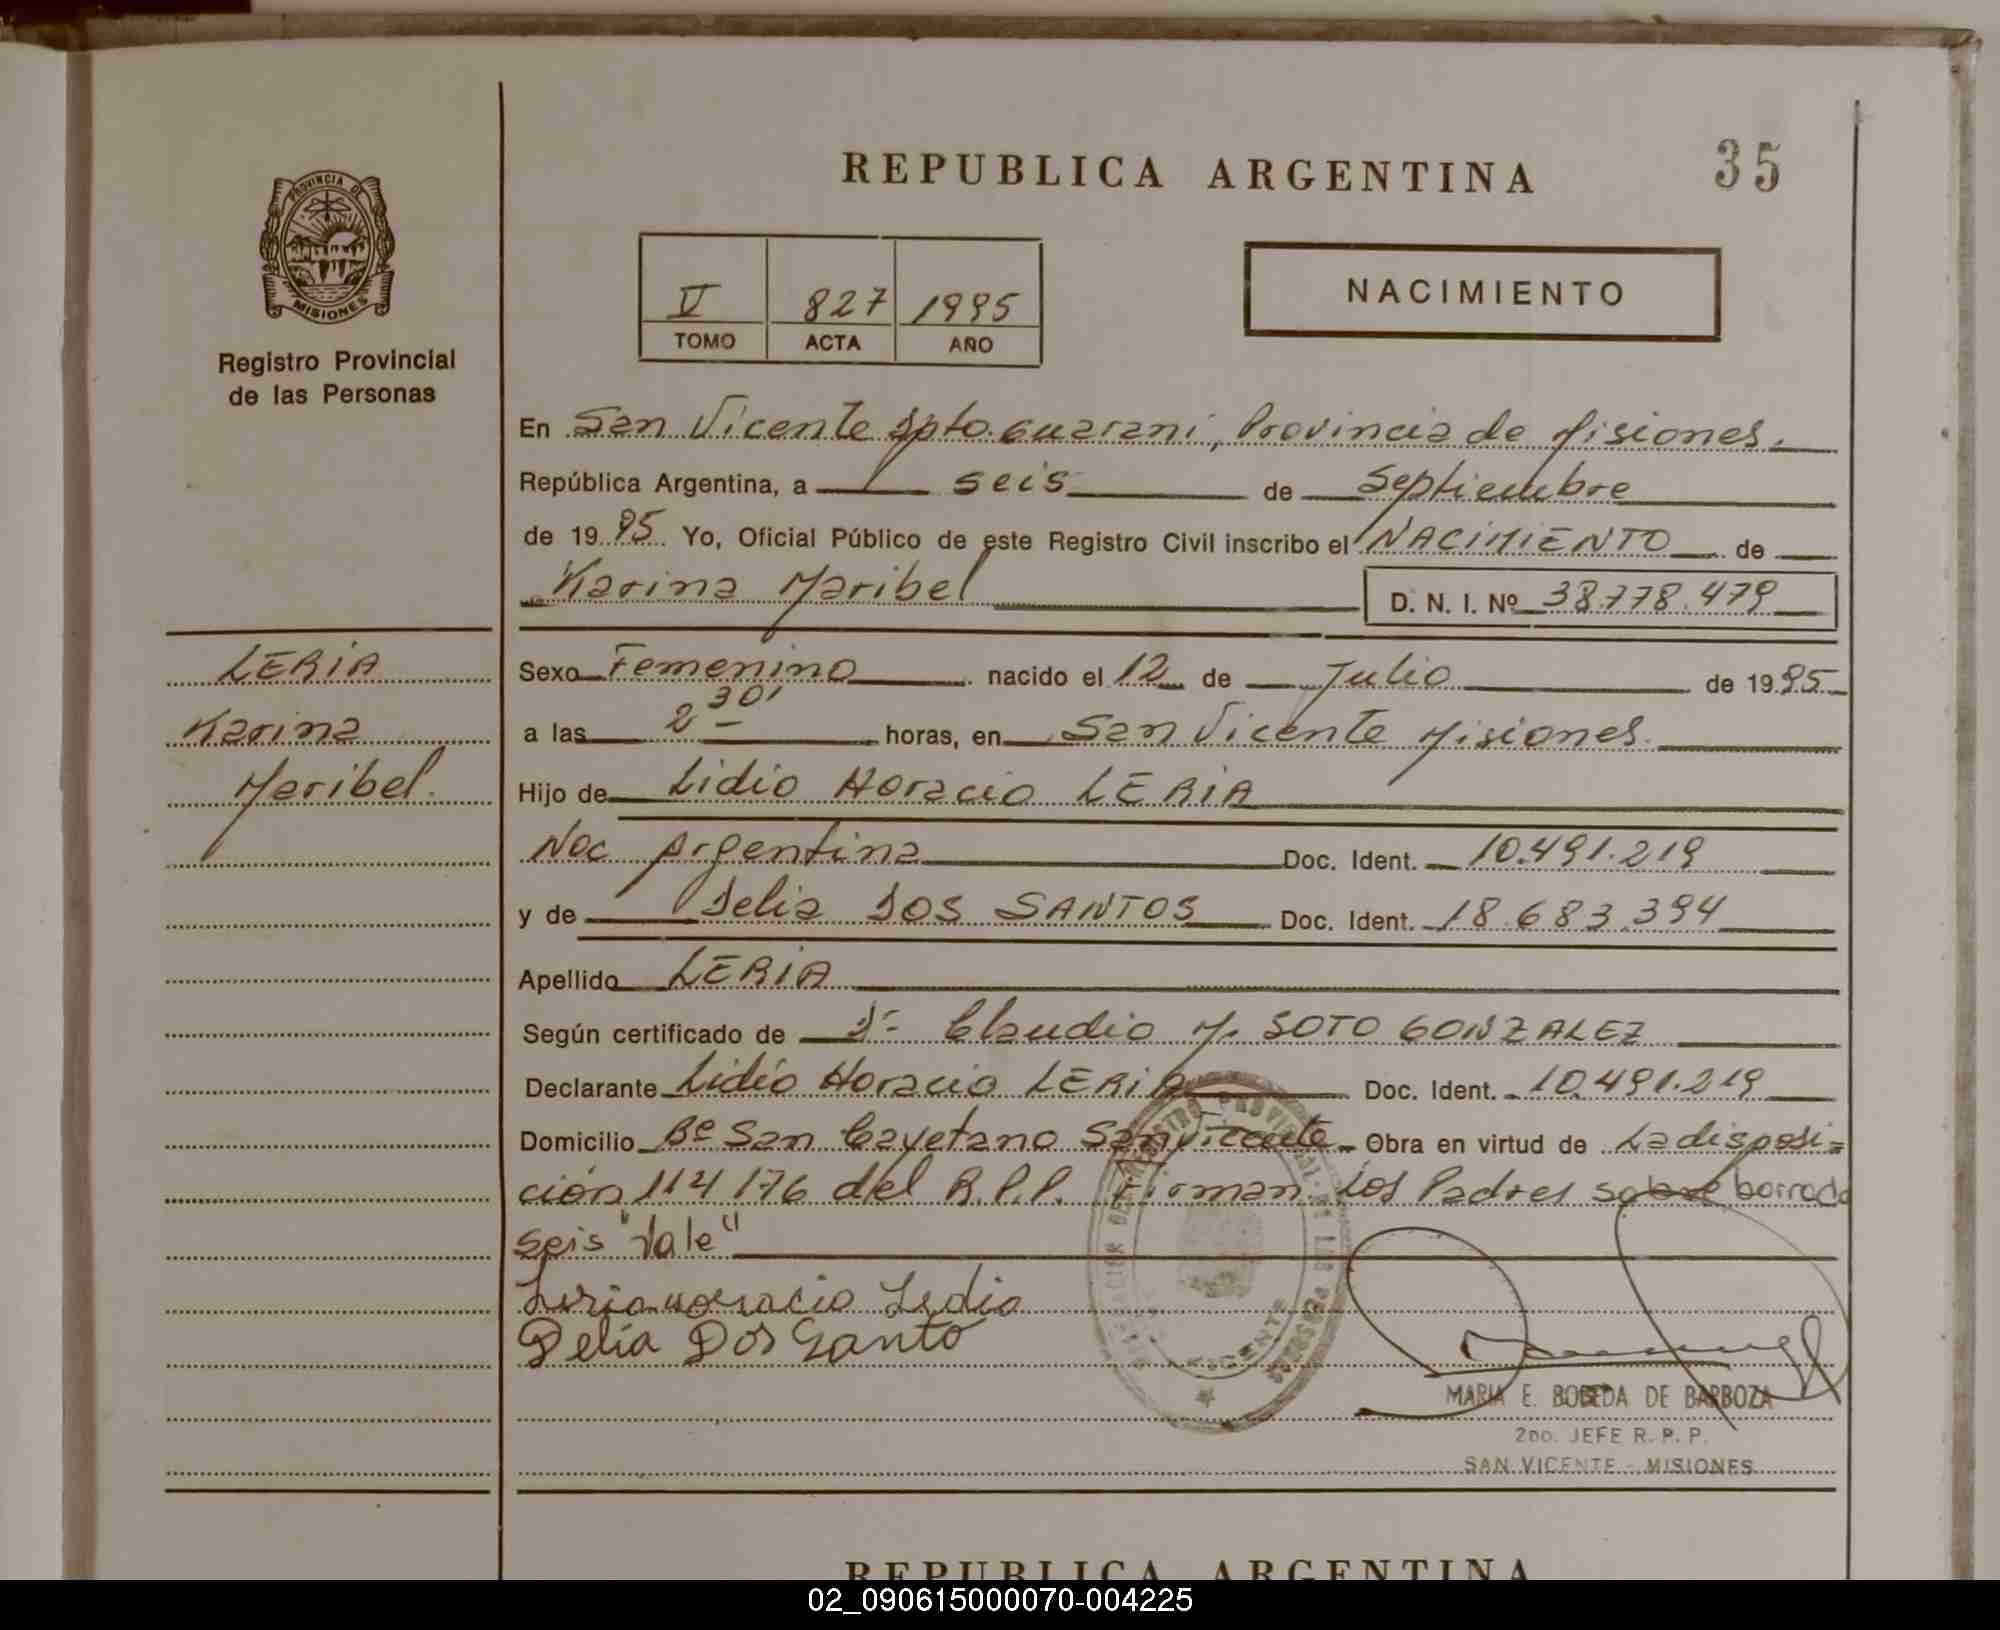 REPUBLICA ARGENTINA
35
PROVINCIA DE
MISIONES
Registro Provincial
de las Personas
V 827 1995
TOMO ACTA AÑO
NACIMIENTO
En San Vicente Dpto. Guarani, Provincia de Misiones.
República Argentina, a seis de Septiembre
de 1995 Yo, Oficial Público de este Registro Civil inscribo el NACIMIENTO de
Karina Maribel D. N. I. Nº 38.778.479
LERIA
Karina
Maribel.
Sexo Femenino nacido el 12 de Julio de 1995
a las 2 30' horas, en San Vicente Misiones.
Hijo de Lidio Horacio LERIA
Nac Argentina Doc. Ident. 10.491.219
y de Delia DOS SANTOS Doc. Ident. 18.683.394
Apellido LERIA
Según certificado de Dr Claudio M. SOTO GONZALEZ
Declarante Lidio Horacio LERIA Doc. Ident. 10.491.219
Domicilio Bº San Cayetano San Vicente Obra en virtud de La disposi=
ción 114/76 del R.P.P. Firman los Padres sobre borrado
seis "Vale"
Leria Horacio Ledio
Delia Dos Santo
MARIA E. BOBEDA DE BARBOZA
2DO. JEFE R. P. P.
SAN VICENTE - MISIONES
REPUBLICA ARGENTINA
02_090615000070-004225